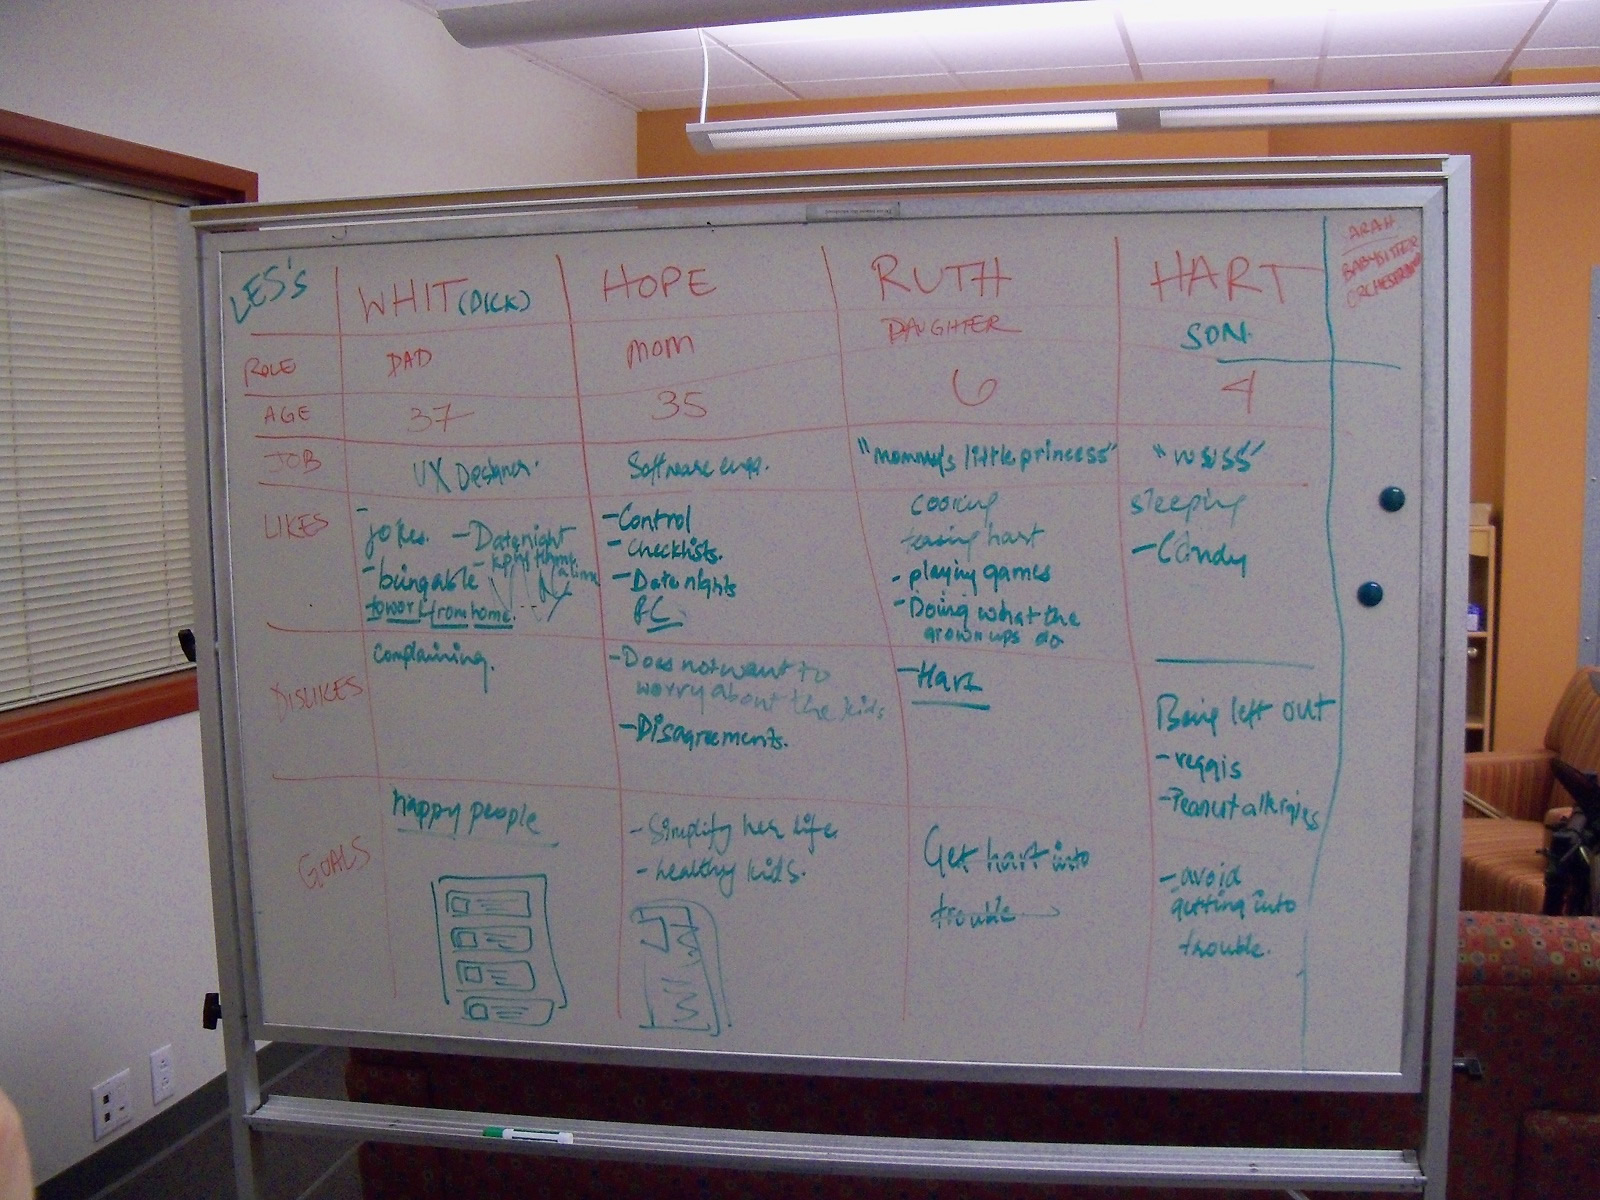 LES'S
WHIT (DICK)
HOPE
RUTH
HART
ARAH
BABYSITTER
ROLE
DAD
MOM
DAUGHTER
SON.
AGE
37
35
6
4
JOB
UX Designer.
Software engg.
"mommy's little princess"
"wuss"
LIKES
- jokes.
- Date night
- being able
to work from home.
- Control
- checklists.
- Date nights
cooking
teasing hart
- playing games
- Doing what the
grown ups do
sleeping
- Candy
DISLIKES
complaining.
- Does not want to
worry about the kids
- Disagreements.
- Hart
Being left out
- veggis
- Peanut allergies
GOALS
happy people
- Simplify her life.
- healthy kids.
Get hart into
trouble
- avoid
getting into
trouble.